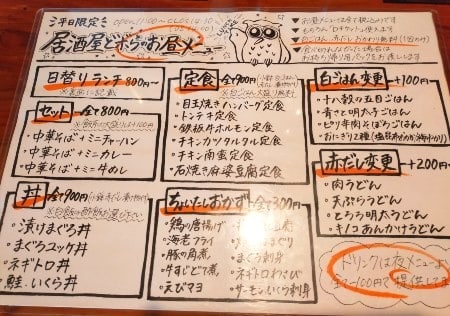 平日限定
居酒屋とボらのお昼メニュー
日替りランチ 800円
セット 全て800円
・中華そば+ミニチャーハン
・中華そば+ミニカレー
・中華そば+ミニ天丼
丼 全て900円
・漬けまぐろ丼
・まぐろユッケ丼
・ネギトロ丼
・鮭、いくら丼
定食 全て900円
・目玉焼きハンバーグ定食
・トンテキ定食
・鉄板牛ホルモン定食
・チキンカツタルタル定食
・チキン南蛮定食
・石焼き麻婆豆腐定食
ちょいたしおかず 全て300円
・鶏の唐揚げ
・海老フライ
・豚の角煮
・牛すじどて煮
・えびマヨ
・まぐろ刺身
・ネギトロわさび
・サーモンいくら刺身
白ごはん変更 +100円
・十八穀の五目ごはん
・青さと明太子ごはん
・ピリ辛肉そぼろごはん
・おにぎり2種
赤だし変更 +200円
・肉うどん
・天ぷらうどん
・とろろ明太うどん
・キノコあんかけうどん
ドリンクは夜メニューより
全て-100円で提供します